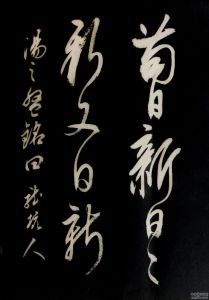 苟日新日〻
新又日新
湯之盤銘曰